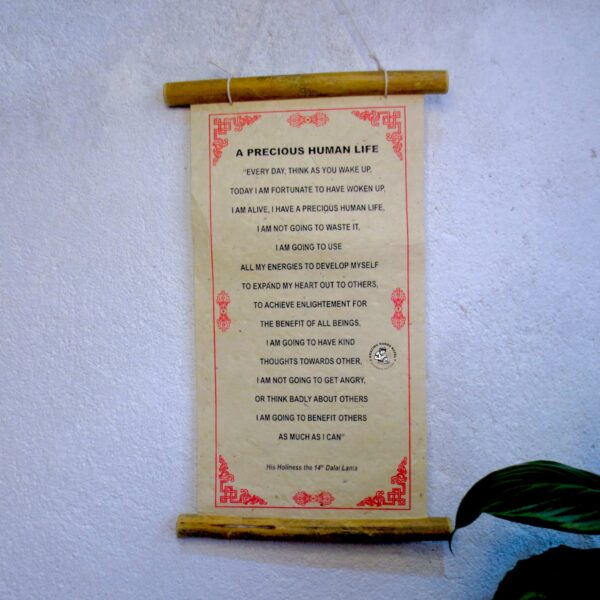 A PRECIOUS HUMAN LIFE
"EVERY DAY, THINK AS YOU WAKE UP,
TODAY I AM FORTUNATE TO HAVE WOKEN UP,
I AM ALIVE, I HAVE A PRECIOUS HUMAN LIFE,
I AM NOT GOING TO WASTE IT,
I AM GOING TO USE
ALL MY ENERGIES TO DEVELOP MYSELF
TO EXPAND MY HEART OUT TO OTHERS,
TO ACHIEVE ENLIGHTEMENT FOR
THE BENEFIT OF ALL BEINGS,
I AM GOING TO HAVE KIND
THOUGHTS TOWARDS OTHER,
I AM NOT GOING TO GET ANGRY,
OR THINK BADLY ABOUT OTHERS
I AM GOING TO BENEFIT OTHERS
AS MUCH AS I CAN"
His Holiness the 14th Dalai Lama